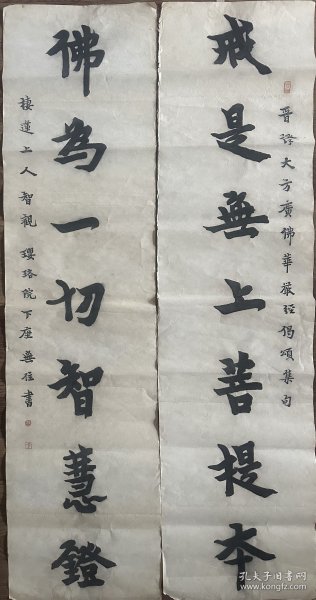 戒是無上菩提本
晉譯大方廣佛華嚴經偈頌集句
佛為一切智慧鐙
棲蓮上人智觀 瓔珞院下座無住書
孔夫子旧书网